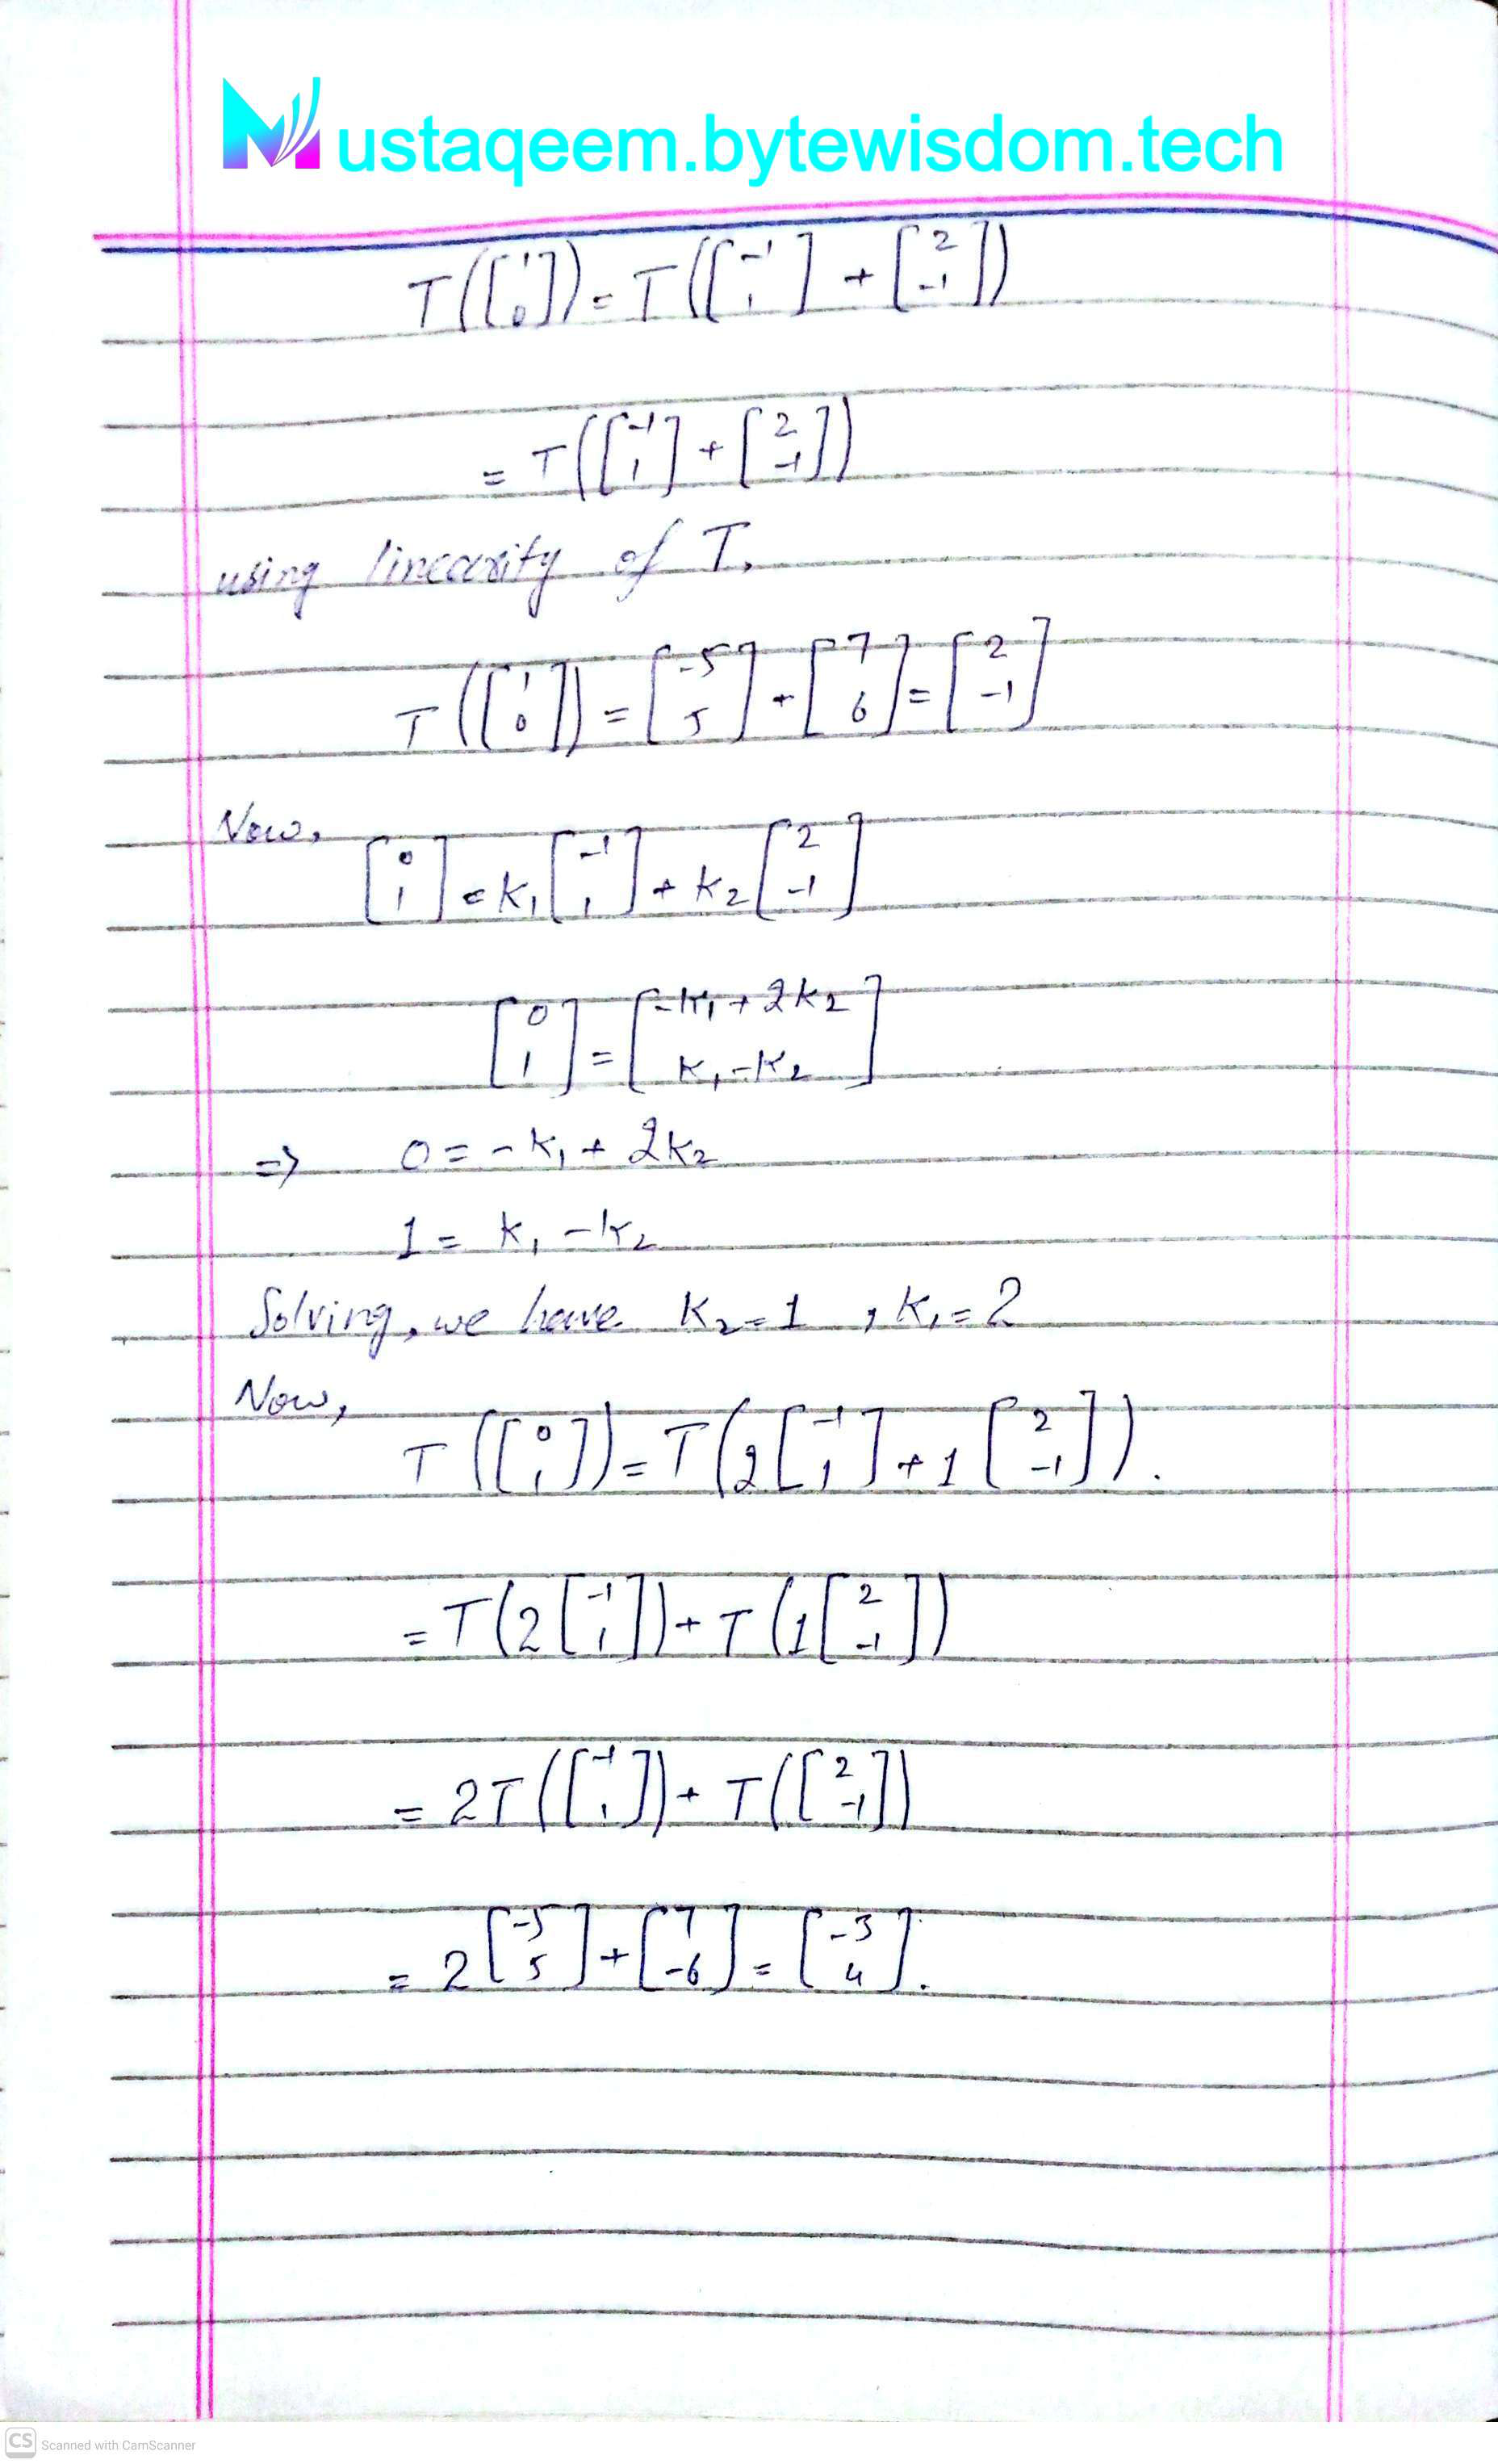 Mustaqeem.bytewisdom.tech
T([1 0]) = T([-1 1] + [2 -1])
= T([-1 1] + [2 -1])
using linearity of T,
T([1 0]) = [-5 5] + [7 6] = [2 -1]
Now,
[0 1] = K₁[-1 1] + K₂[2 -1]
[0 1] = [-K₁ + 2K₂ K₁ - K₂]
=> 0 = -K₁ + 2K₂
1 = K₁ - K₂
Solving, we have K₂ = 1 , K₁ = 2
Now,
T([0 1]) = T(2[-1 1] + 1[2 -1]).
= T(2[-1 1]) + T(1[2 -1])
= 2T([-1 1]) + T([2 -1])
= 2[-5 5] + [7 -6] = [-3 4].
CS Scanned with CamScanner